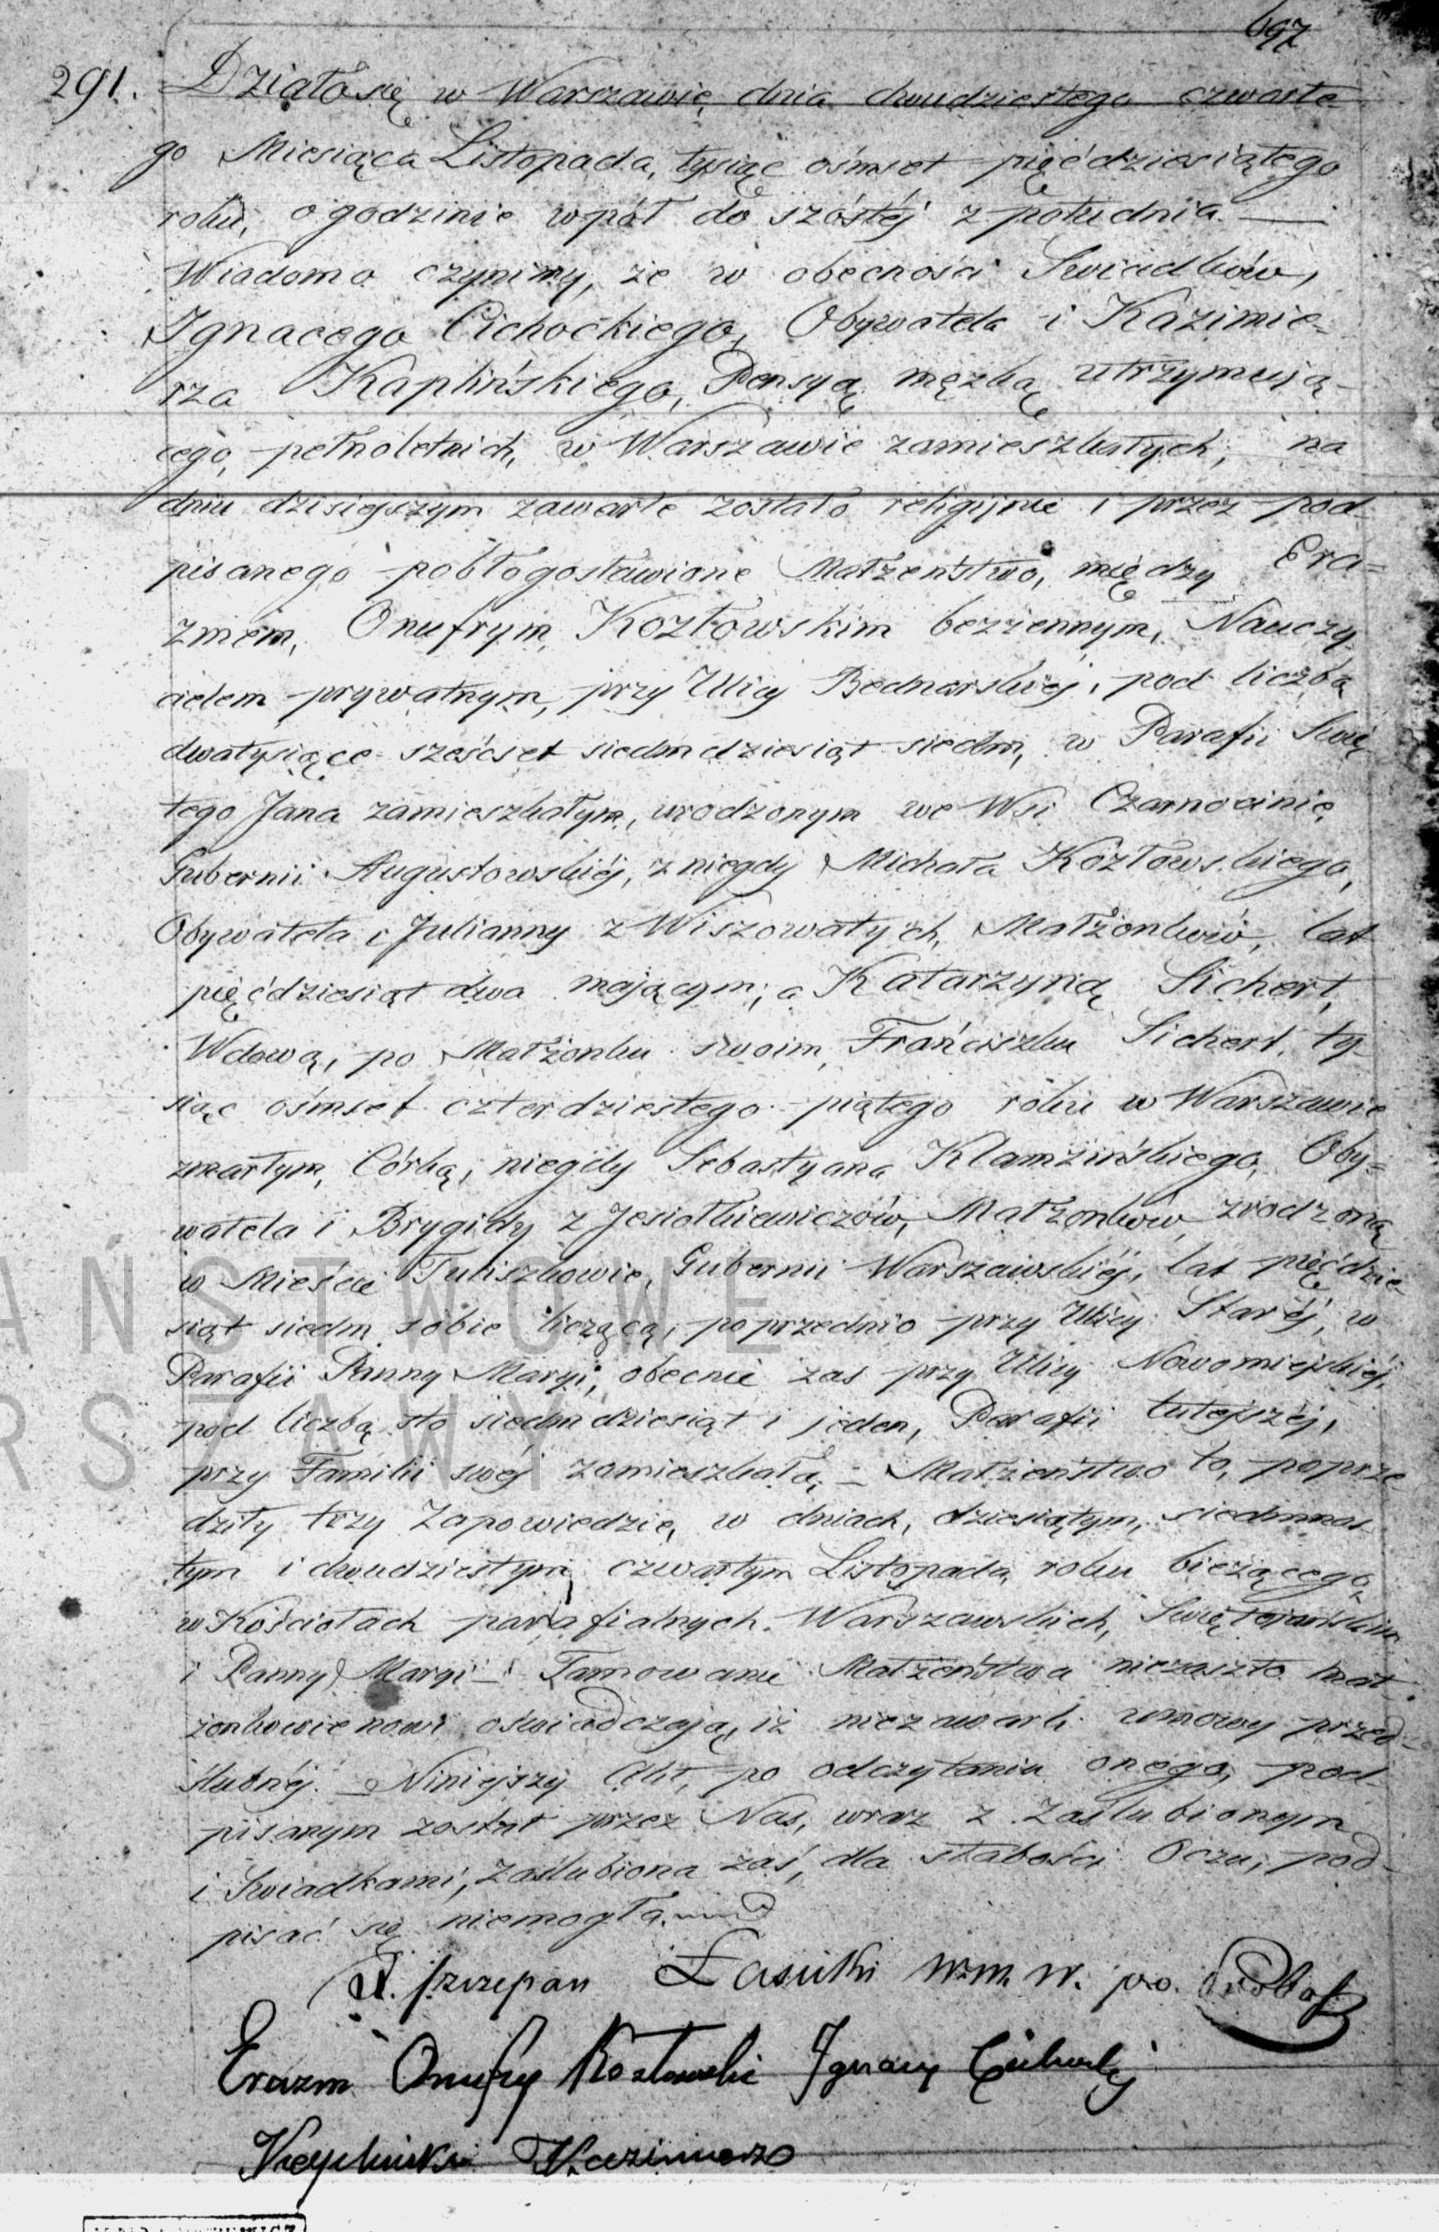 697
291. Działo się w Warszawie, dnia dwudziestego czwarte
go Miesiąca Listopada, tysiąc ośmset pięćdziesiątego
roku, o godzinie wpół do szóstéj z południa. —
Wiadomo czynimy, że w obecności Swiadków,
Ignacego Cichockiego, Obywatela i Kazimie-
rza Kaplińskiego, Pensyą męzką utrzymują-
cego, pełnoletnich, w Warszawie zamieszkałych; na
dniu dzisiejszym zawarte zostało religijnie i przez pod-
pisanego pobłogosławione Małżeństwo, między Era=
zmem, Onufrym Kozłowskim bezżennym, Nauczy
cielem prywatnym, przy Ulicy Bednarskiéj, pod liczbą
dwatysiące sześćset siedmdziesiąt siedm, w Parafii Swię
tego Jana zamieszkałym, urodzonym we Wsi Czarnocinie,
Gubernii Augustowskiéj, z niegdy Michała Kozłowskiego,
Obywatela i Julianny z Wiszowatych, Małżonków, lat
pięćdziesiąt dwa mającym; a Katarzyną Sichert,
Wdową, po Małżonku swoim, Franciszku Sichert, ty-
siąc ośmset czterdziestego piątego roku w Warszawie
zmarłym, Córką, niegdy Sebastyana Klamzińskiego, Oby=
watela i Brygidy z Jesiotkiewiczów, Małżonków, zrodzoną
w Mieście Tuliszkowie, Gubernii Warszawskiéj, lat pięćdzie-
siąt siedm sobie liczącą, poprzednio przy Ulicy Staréj, w
Parafii Panny Maryi, obecnie zaś przy Ulicy Nowomiejskiéj,
pod liczbą sto siedmdziesiąt i jeden, Parafii tutejszéj,
przy Familii swéj zamieszkałą. — Małżeństwo to, poprze
dziły trzy Zapowiedzie, w dniach, dziesiątym, siedmnas-
tym i dwudziestym czwartym Listopada roku bieżącego,
w Kościołach parafialnych Warszawskich, Swiętojańskim
i Panny Maryi — Tamowanie Małżeństwa niezaszło. Mał-
żonkowie nowi oświadczają, iż niezawarli umowy przed-
ślubnéj. — Niniejszy Akt, po odczytaniu onego, pod-
pisanym został przez Nas, wraz z Zaślubionym
i Swiadkami, Zaślubiona zaś, dla słabości Oczu, pod-
pisać się niemogła.
X. Szczepan Łasicki
Erazm Onufry Kozłowski Ignacy Cichocky
Kapliński Kazimierz